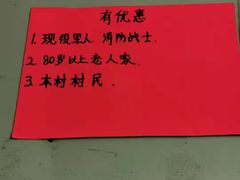 有优惠
1. 现役军人 消防战士.
2. 80岁以上老人家.
3. 本村村民.